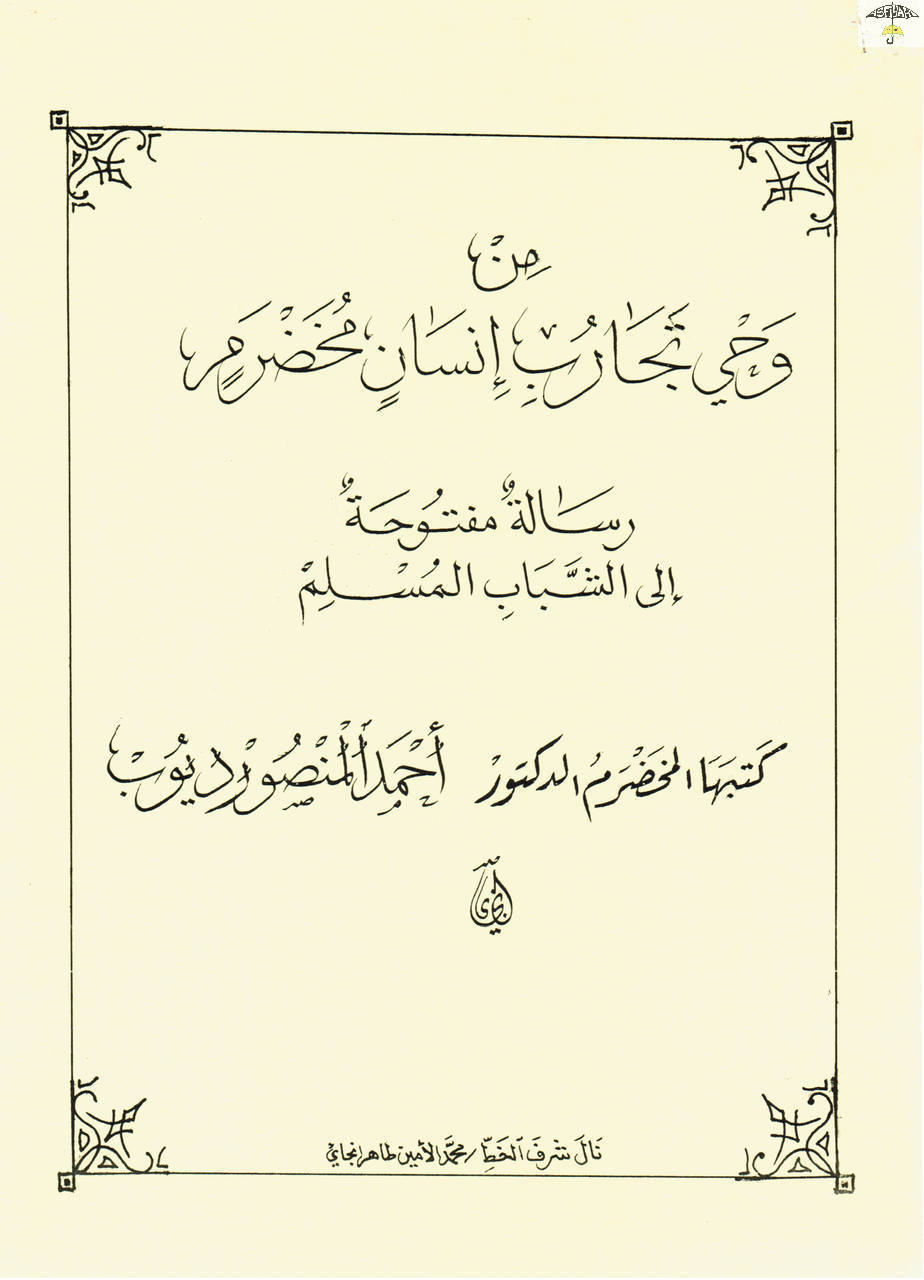 مِنْ
وَحْيِ تَجَارُبِ إِنسَانٍ مُخَضْرَمٍ
رسَالةٌ مفتُوحَةٌ
إلى الشَّبَابِ المُسْلِمْ
كَتبَهَا المخَضْرَمُ الدكتَورْ أَحْمَدُ الْمَنْصُورْ ديُوبْ
نَالَ شرفَ الخَطِّ / محمَّد الأمين طاهر انجاي